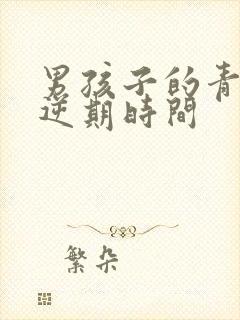 男孩子的青
逆期時間
繁朵